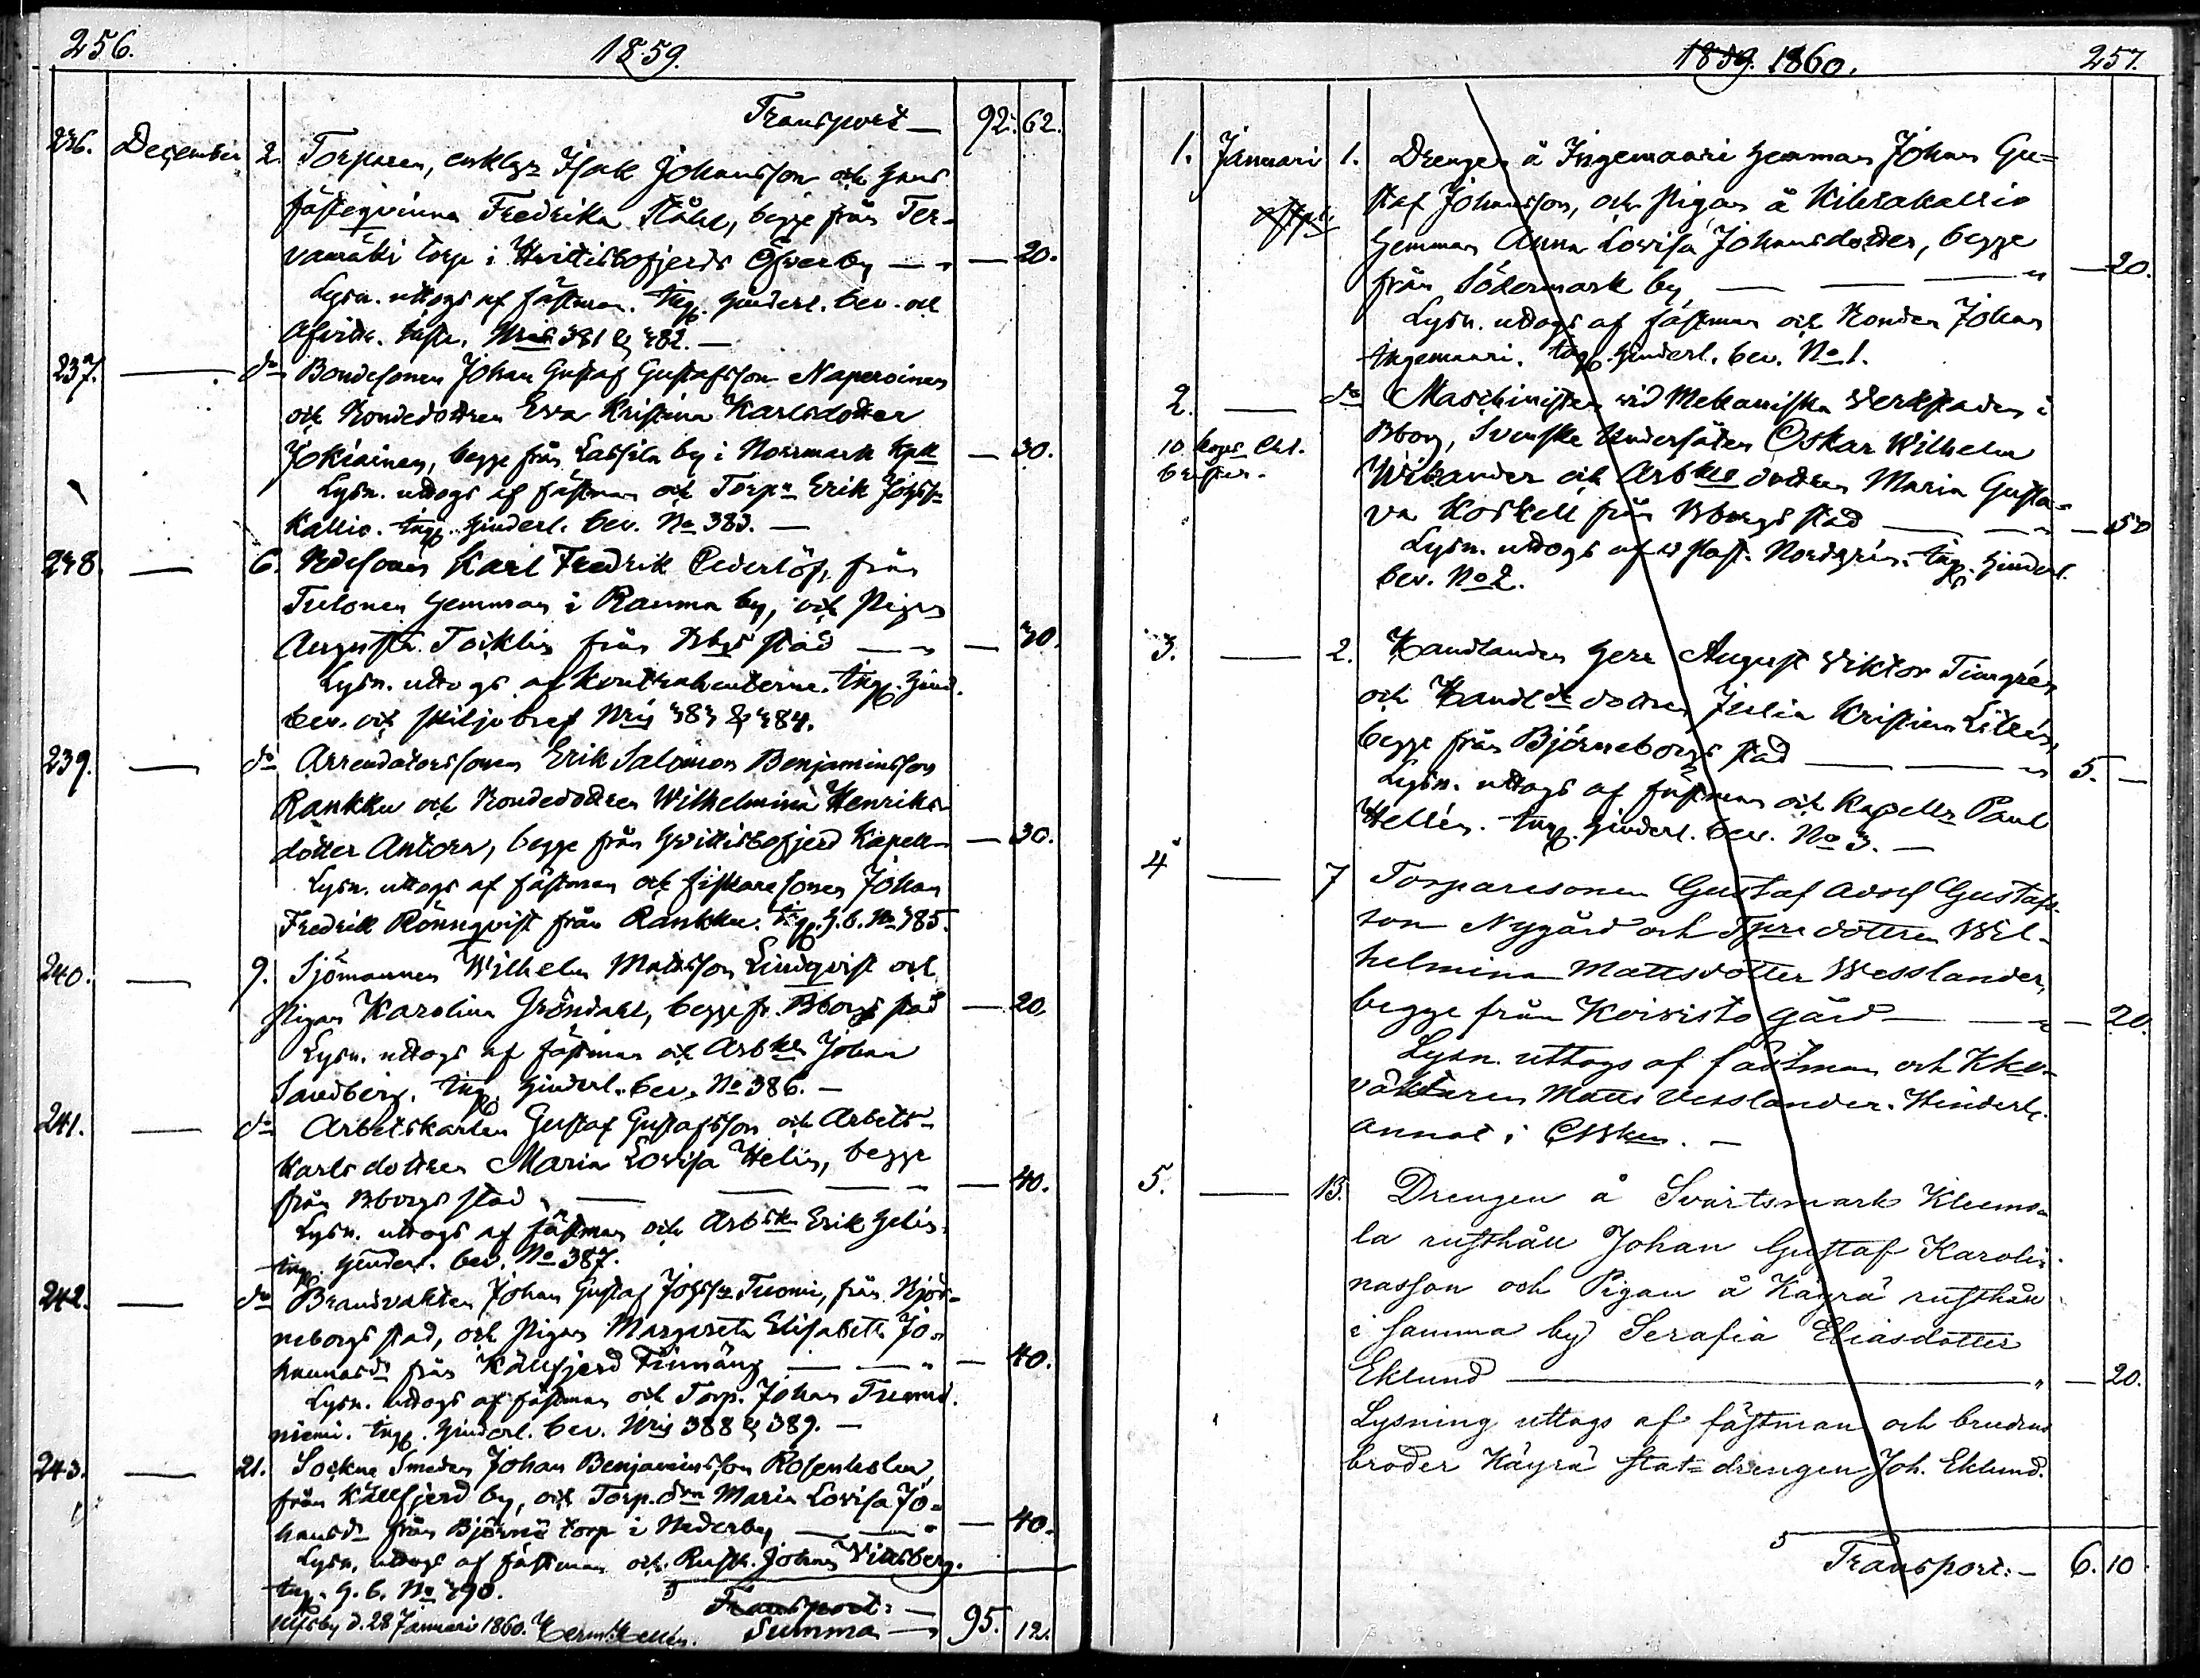 256.
1859.
Transport — 92. 62.
236. December 2. Torparen, enklgn Isak Johansson och hans
fästeqvinna Fredrika Ståhl, begge från Ter-
vamäki torp i Hvittisbofjerds Öfverby — 20.
Lysn. uttogs af fästman. hinderl. bev. och
Nris 381 & 382. —
237. — do Bondesonen Johan Gustaf Gustafsson Naperoinen
och Bondedottren Eva Kristina Karlsdotter
Jokiainen, begge från Lassila by i Norrmark Kpll — 30.
Lysn. uttogs af fästman och Torpn Erik Johss:
Kallio. hinderl. bev. No 383. —
238. — 6. Karl Fredrik Cederlöf, från
Tulonen hemman i Rauma by, och Pigan
Augusta Tocklin från Bbgs stad — 30.
Lysn. uttogs af Kontrahenterne. hind.
bev. och skiljobref Nris 383 & 384.
239. — do Arrendatorssonen Erik Salomon Benjaminsson
Rankku och Bondedottren Wilhelmina Henriks-
dotter Antora, begge från Hvittisbofjerd Kapell — 30.
Lysn. uttogs af fästman och fiskaresonen Johan
Fredrik Rönnqvist från Rankku. h. b. No 385.
240. — 9. Sjömannen Wilhelm Matsson Lindqvist och
Pigan Karolina Gröndahl, begge fr. Bborgs stad — 20.
Lysn. uttogs af fästman och Arbkln Johan
Sandberg. hinderl. bev. No 386. —
241. — do Arbetskarlen Gustaf Gustafsson och Arbets-
karlsdottren Maria Lovisa Helin, begge
från Bborgs stad — 40.
Lysn. uttogs af fästman och Arbsk Erik Helin.
hinderl. bev. No 387.
242. — do Brandvakten Johan Gustaf Johssn Tuomi, från Björ-
neborgs stad, och Pigan Margareta Elisabeth Jo-
hannasdr från Källfjerd Finnäng — 40.
Lysn. uttogs af fästman och Torp. Johan
niemi. hinderl. bev. Nris 388 & 389. —
243. — 21. Sockne Smeden Johan Benjaminsson Rosenholm,
från Källfjerd by, och Torp. drn Maria Lovisa Jo-
hansdr från Björnä torp i Nederby — 40.
Lysn. uttogs af fästman och Rusth. Johan Villsberg.
h. b. No 390.
Transport: —
Ulfsby d. 28 Januari 1860. Herm. Hellén. Summa — 95. 12.
1859. 1860.
257.
1. Januari 1. Drengen å Ingemaari hemman Johan Gu-
staf Johansson, och Pigan å Kiltrakallio
hemman Anna Lovisa Johansdotter, begge
från Södermark by, — 20.
Lysn. uttogs af fästman och Bonden Johan
Ingemaari. hinderl. bev. No 1.
2. — do Maschinisten vid Mekaniska Verkstaden i
10 kops Chl. Bborg, Svenske Undersåten Oskar Wilhelm
brister. Wikander och Arbkls dottren Maria Gusta-
va Koskell från Bborgs stad — 50
Lysn. uttogs af Nordgrén. hinderl.
bev. No 2.
3. — 2. Handlanden herr August Viktor Timgrén
och Handldr dottren Julia Kristina Litlén,
begge från Björneborgs stad — 5. —
Lysn. uttogs af fästman och Kapelln Paul
Hellén. hinderl. bev. No 3. —
4 — 7 Torparesonen Gustaf Adolf Gustafs-
son Nygård och Tpre dottren Wil-
helmina Mattsdotter Wesslander,
begge från Koivisto gård — 20.
Lysn. uttogs af fästman och Kko-
väktaren Matts Vesslander. Hinderl.
annot i
5. — 13. Drengen å Svartsmark Kleemo-
la rusthåll Johan Gustaf Karoli-
nasson och Pigan å Käyrä rusthåll
i samma by Serafia Eliasdotter
Eklund — 20.
Lysning uttogs af fästman och brudens
broder Käyrä stat-drengen Joh. Eklund.
Transport: — 6. 10